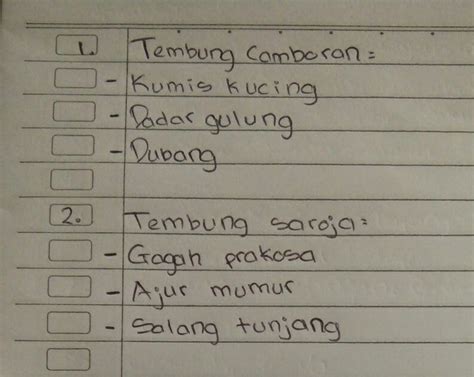 1. Tembung Camboran =
- Kumis kucing
- Dadar gulung
- Dubang
2. Tembung saroja =
- Gagah prakosa
- Ajur mumur
- Salang tunjang